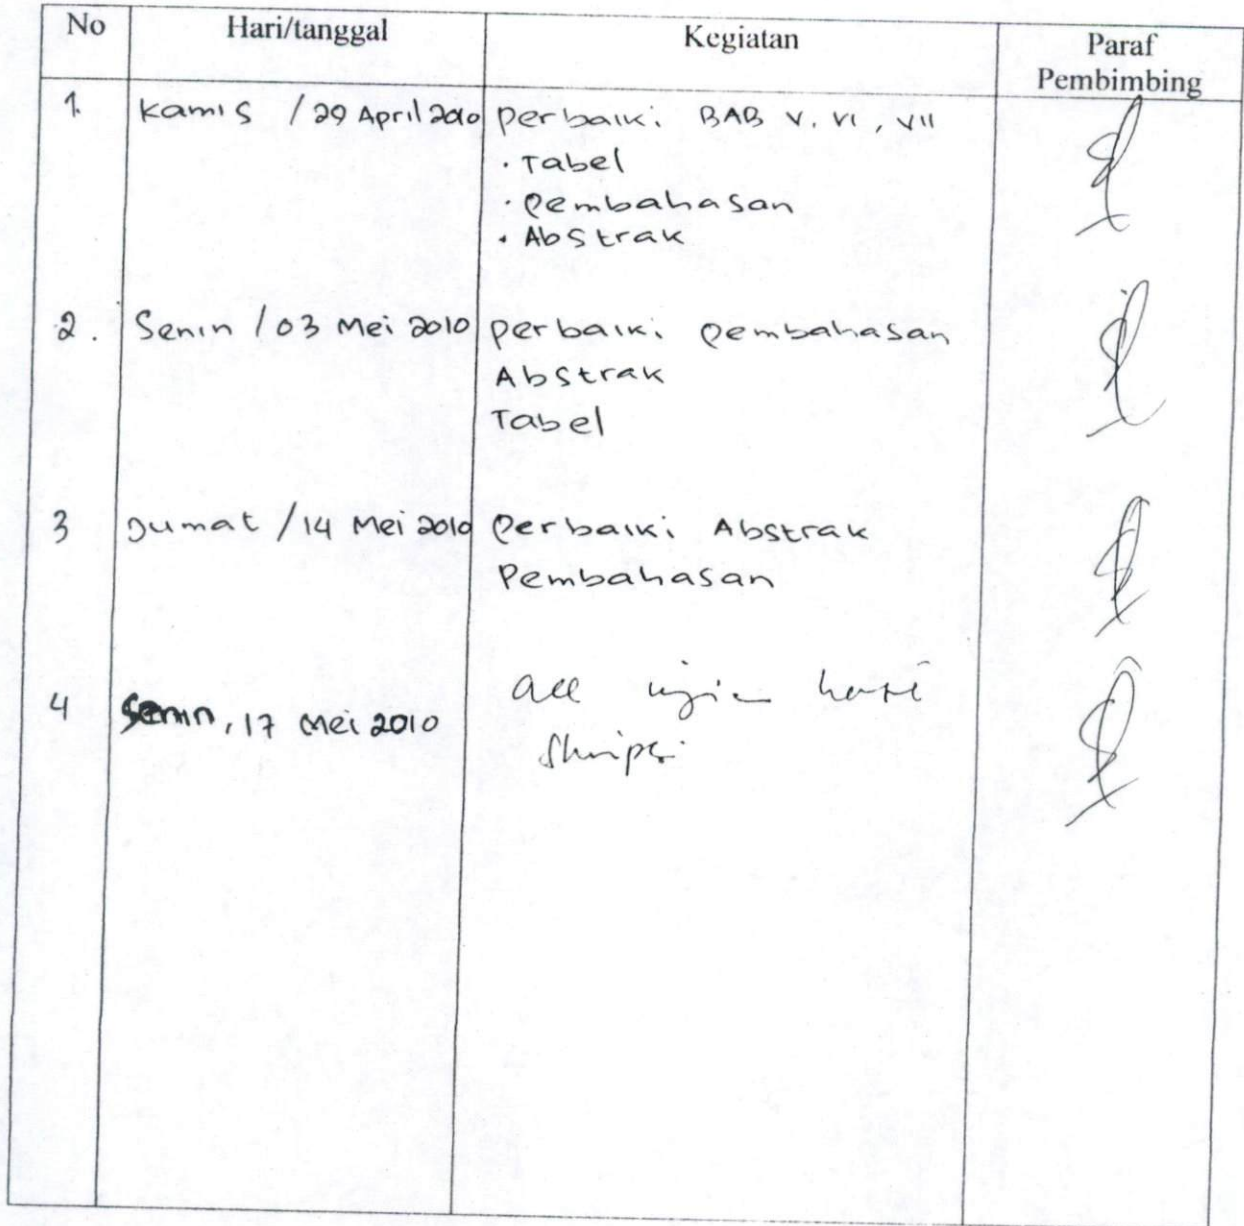 No Hari/tanggal Kegiatan Paraf Pembimbing
1. Kamis / 29 April 2010 perbaiki BAB V, VI, VII
. Tabel
. Pembahasan
. Abstrak
2. Senin / 03 Mei 2010 perbaiki pembahasan
Abstrak
Tabel
3 Jumat / 14 Mei 2010 Perbaiki Abstrak
Pembahasan
4 Senin, 17 Mei 2010 acc ujian hasil
Skripsi